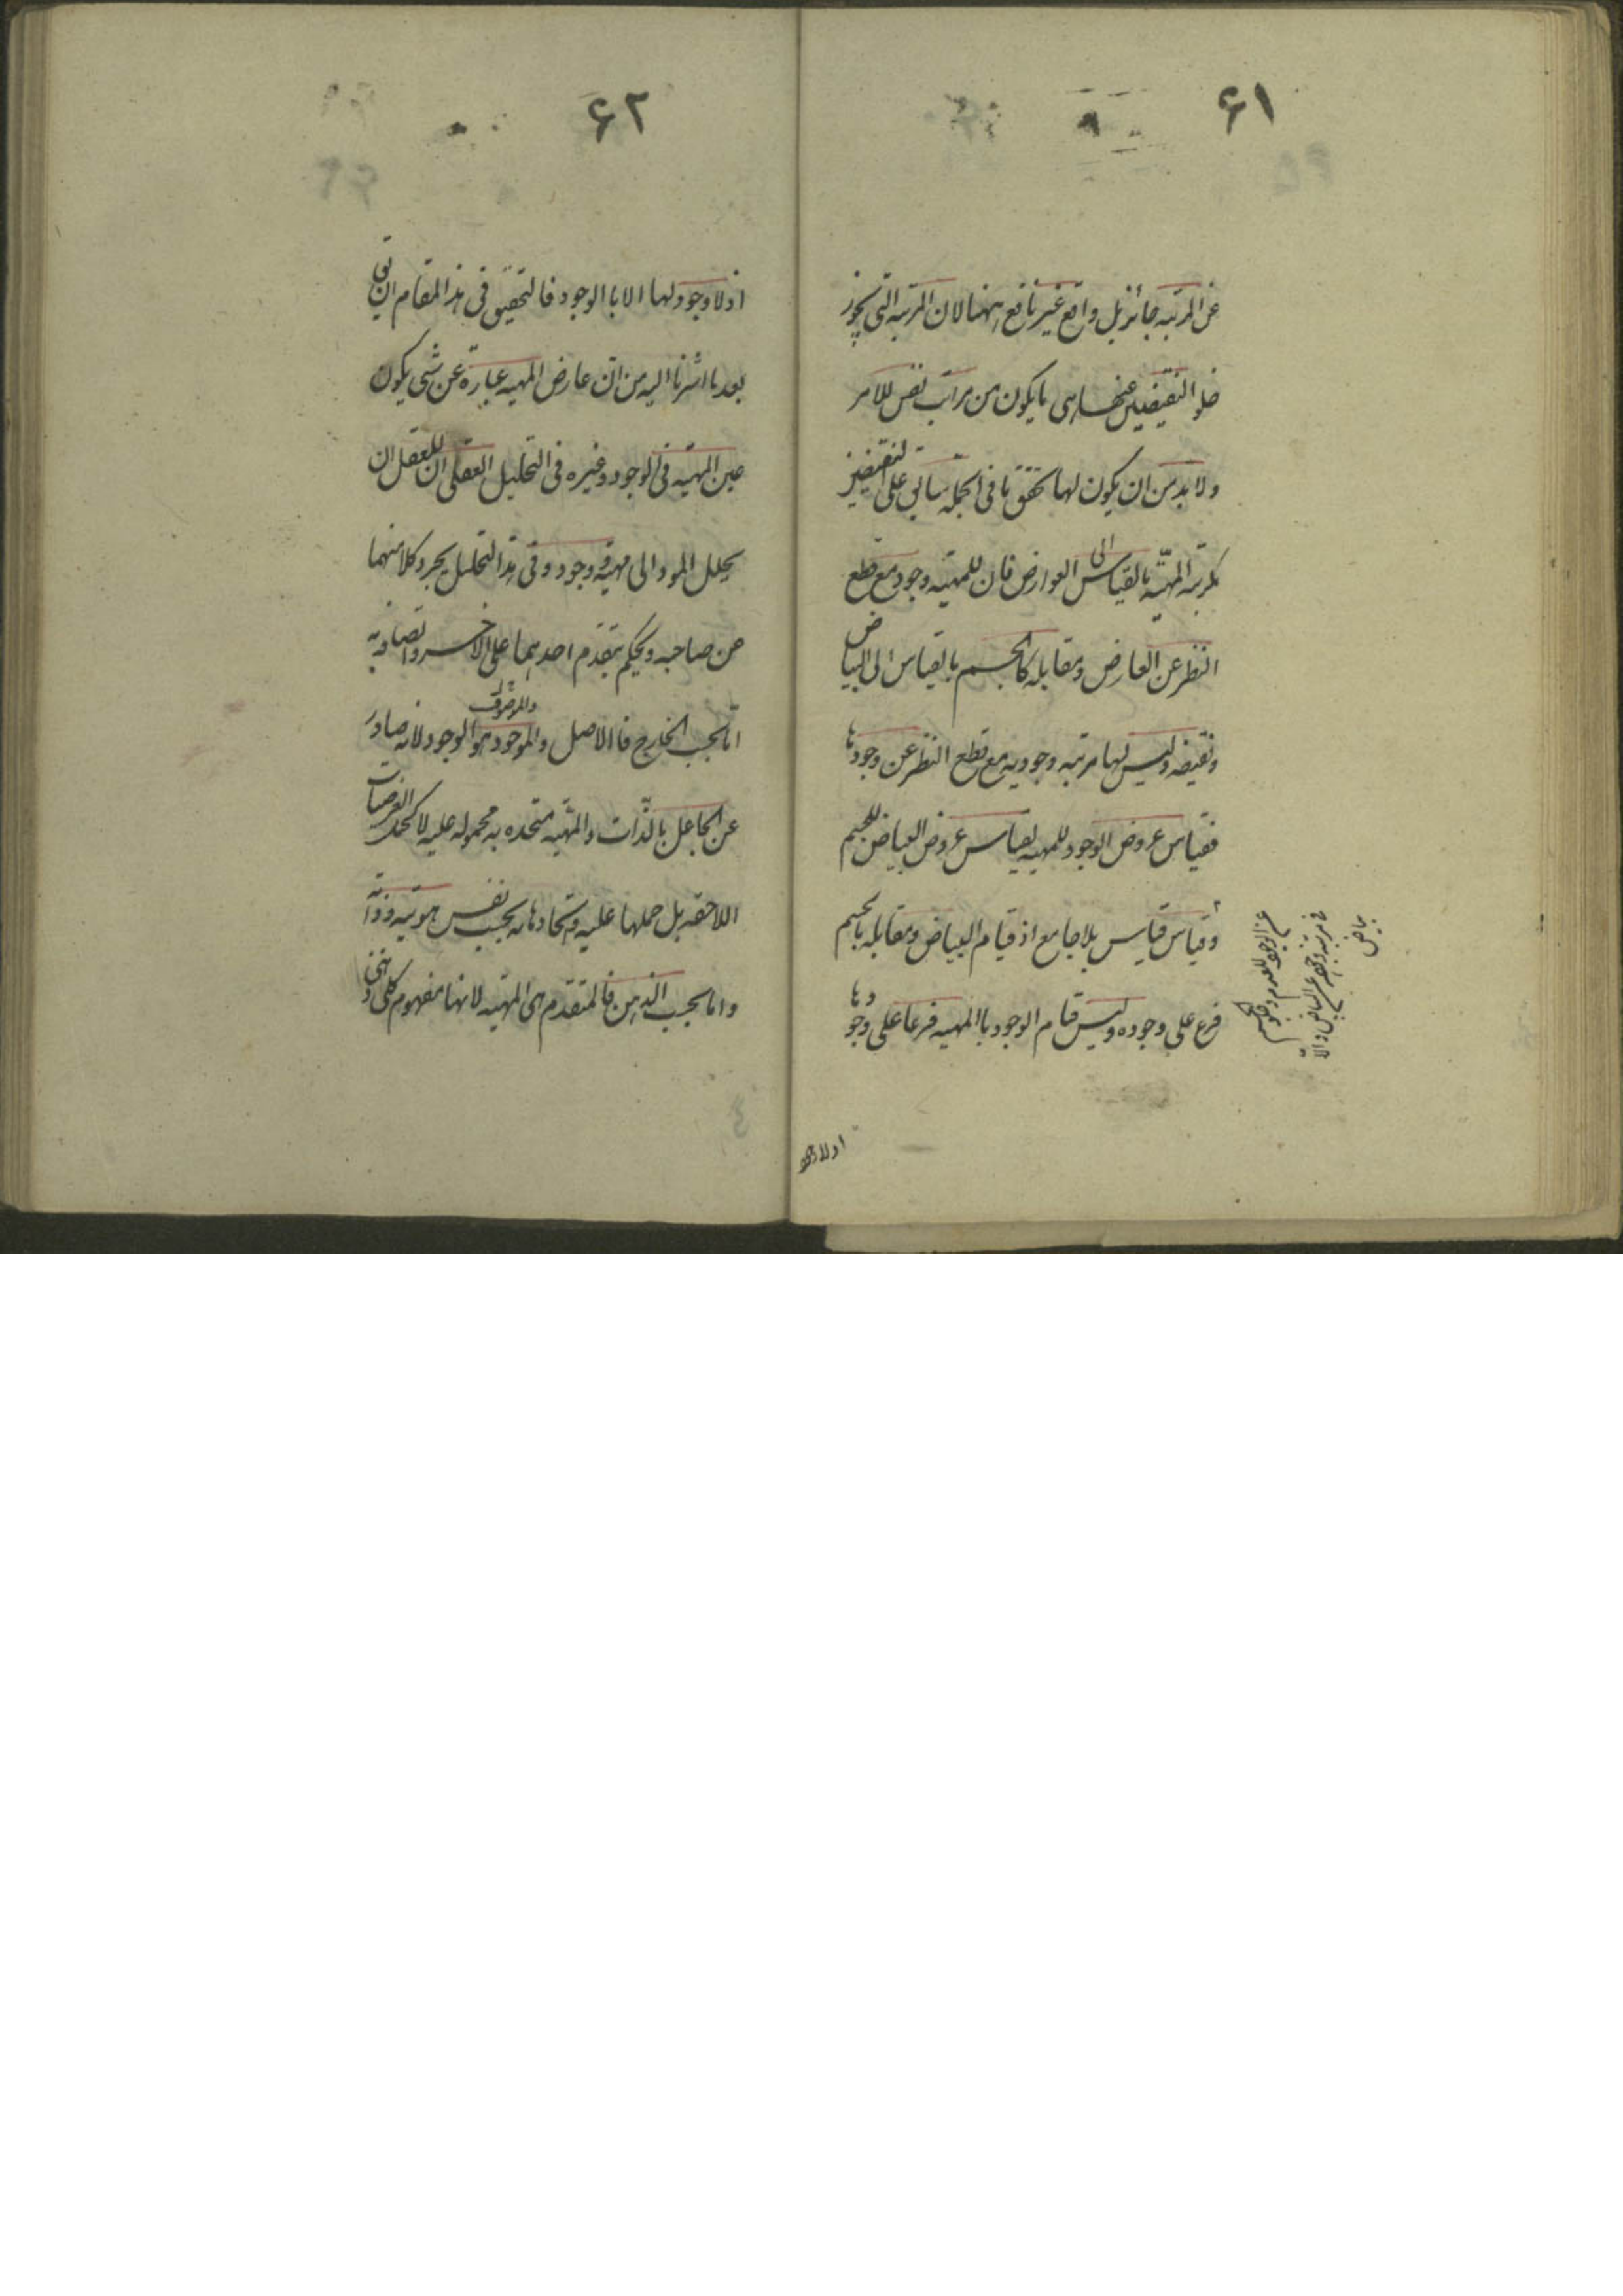 ۶۱
عن المرتبه جائز بل واقع غیر نافع ههنا لان المرتبه التی یجوز
خلو النقیضین عنها هی ما یکون من مراتب نفس الامر
ولا بد من ان یکون لها تحقق ما فی الجمله سابق علی النقیضین
کمرتبه المهیّه بالقیاس الی العوارض فان للمهیته وجود مع قطع
النظر عن العارض ومقابله کالجسم بالقیاس الی البیاض
ونقیضه ولیس لها مرتبه وجودیه مع قطع النظر عن وجودها
فقیاس عروض الوجود للمهیه بقیاس عروض البیاض للجسم
وقیاس قیاس بلا جامع اذ قیام البیاض ومقابله بالجسم
فرع علی وجوده ولیس قیام الوجود باالمهیه فرعا علی وجودها
بیاض
۶۲
اذ لا وجود لها الا باالوجود فالتحقیق فی هذا المقام ان یق
بعد ما اشرنا الیه من ان عارض المهیه عبارة عن شی یکون
عین المهیته فی الوجود وغیره فی التحلیل العقلی ان للعقل ان
یحلل المود الی مهیته ووجود وفی هذا التحلیل یجرد کلا منهما
عن صاحبه ویحکم بتقدم احدهما علی الاخر واتصافه به
اما بحسب الخارج فاالاصل والموجود هو الوجود لانه صادر
عن الجاعل بالذّات والمهیّه متحده به محموله علیه لا کحمل العرضیات
اللاحقه بل حملها علیه واتحادها به بحسب نفس هویته وذاته
واما بحسب الذهن فالمتقدم هی المهیته لانها مفهوم کلی ذهنی